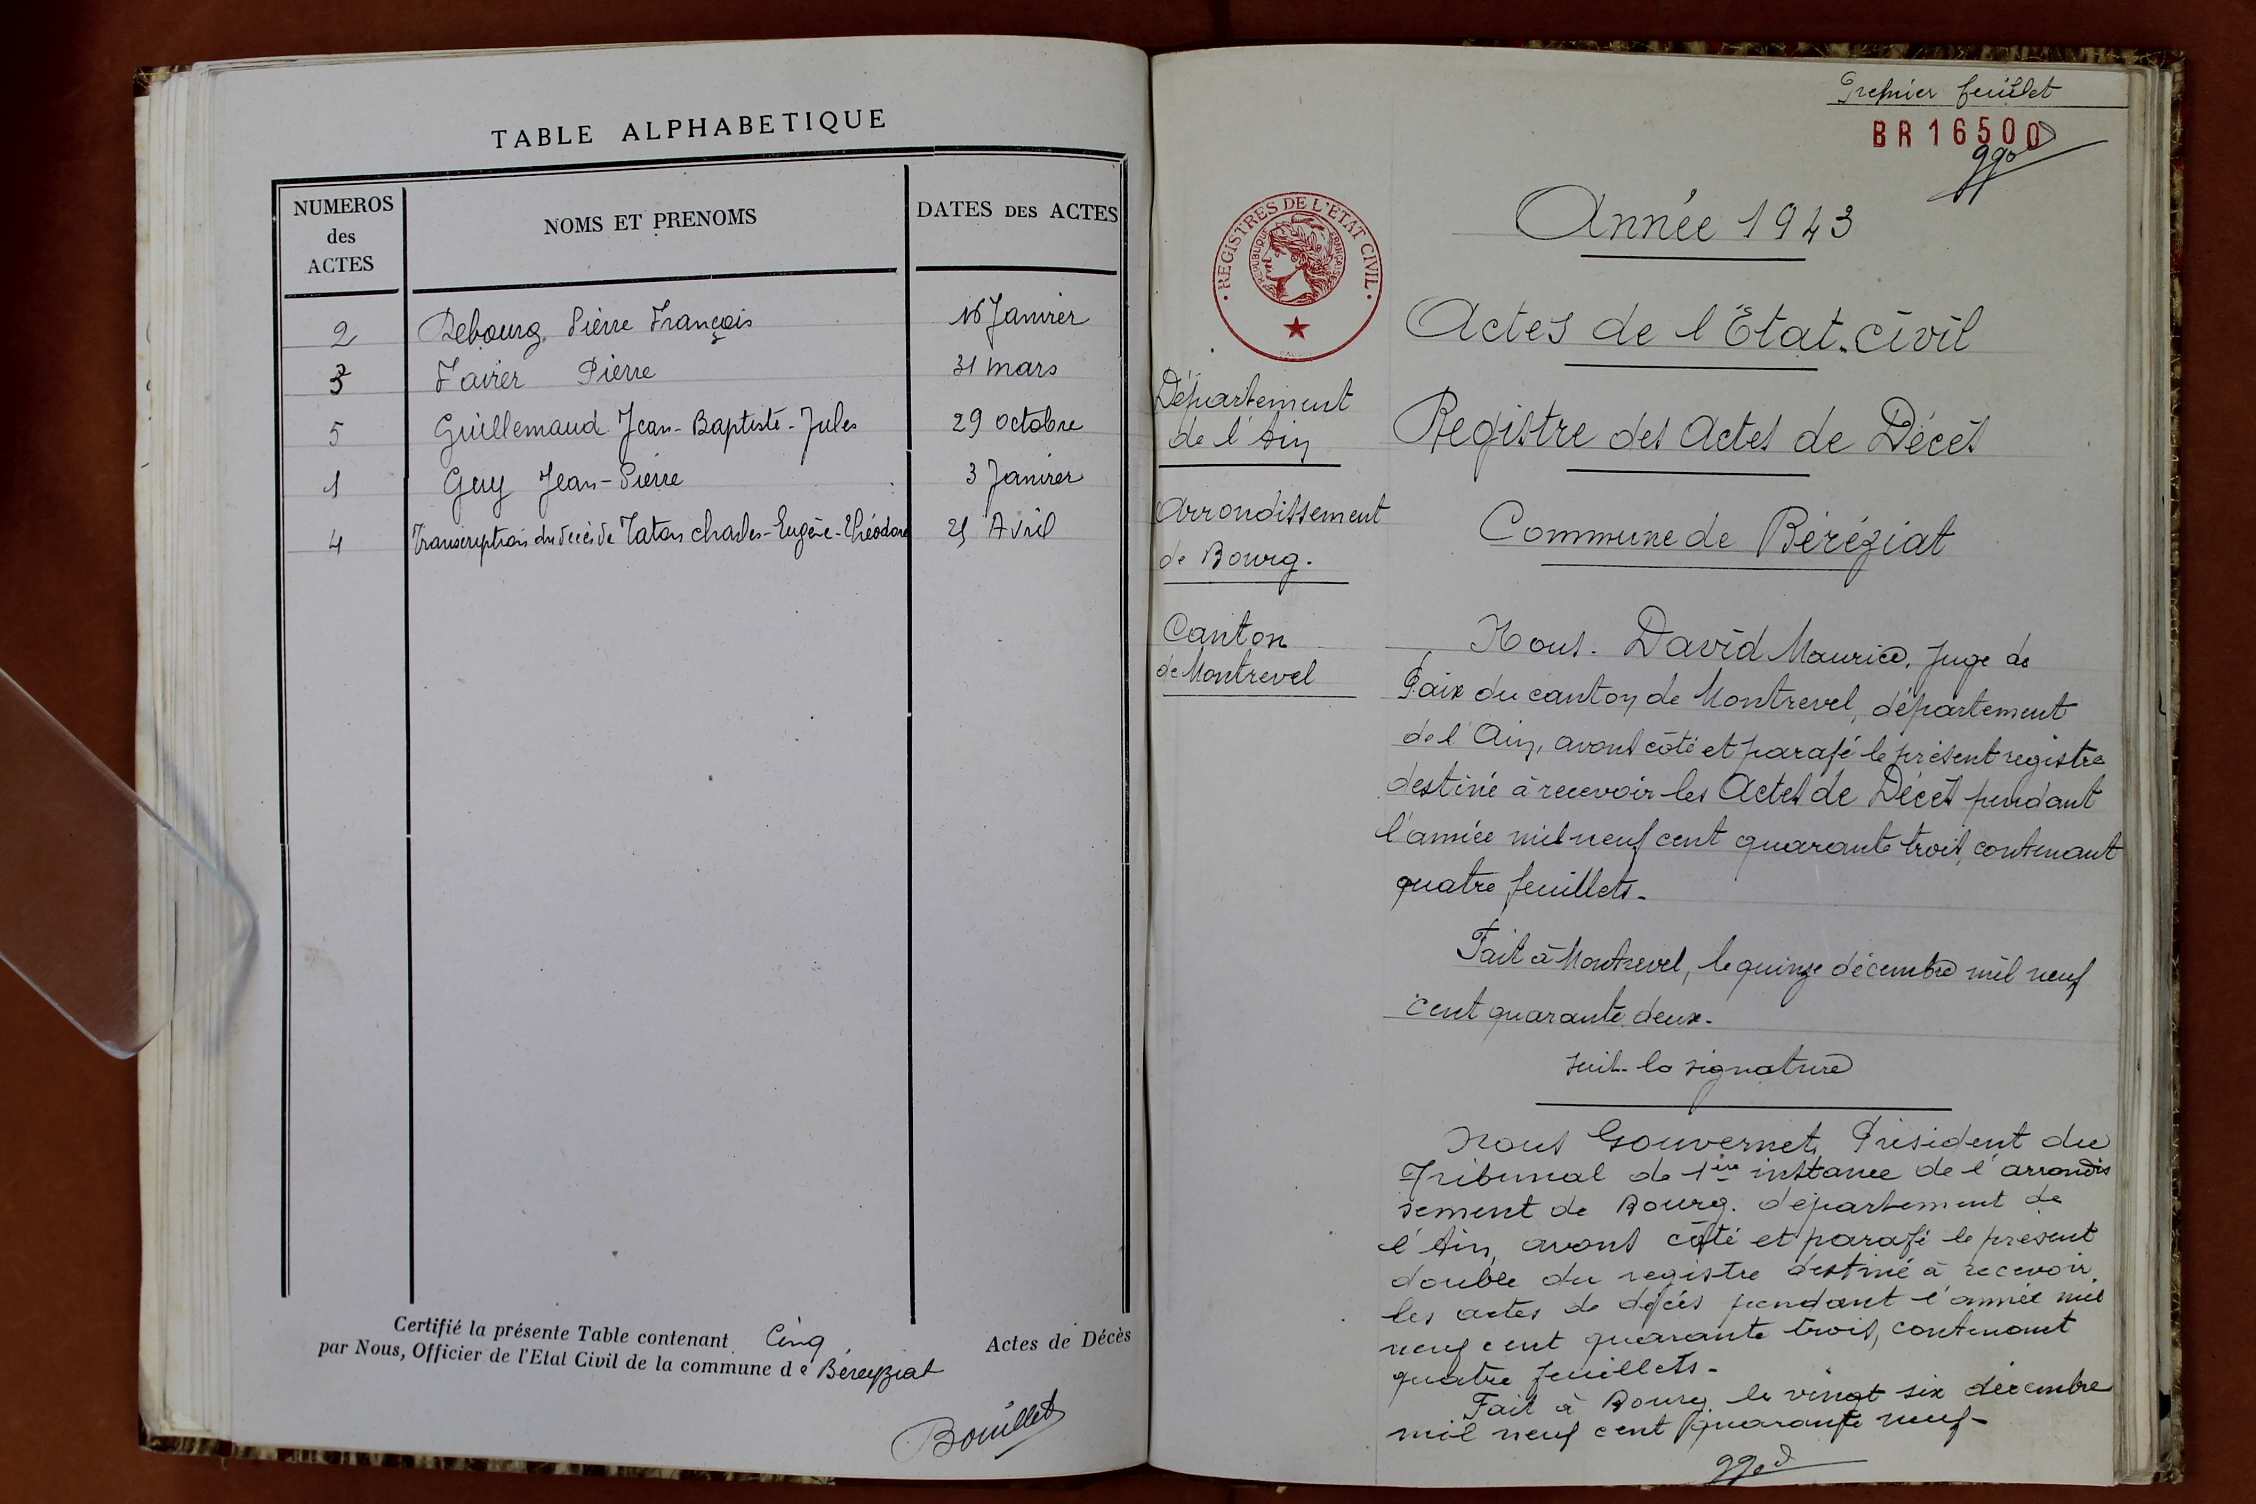 TABLE ALPHABETIQUE
NUMEROS des ACTES
NOMS ET PRENOMS
DATES DES ACTES
2 Debourg Pierre François 16 Janvier
3 Favier Pierre 31 mars
5 Guillemaud Jean-Baptiste-Jules 29 octobre
1 Guy Jean-Pierre 3 Janvier
4 Transcription du décès de Taton Charles-Eugène-Théodore Avril
Certifié la présente Table contenant Cinq Actes de Décès
par Nous, Officier de l'Etat Civil de la commune de Béreyziat
Bouillet
Premier feuillet
BR 16500
REGISTRES DE L'ETAT CIVIL
REPUBLIQUE FRANÇAISE
Année 1943
Actes de l'Etat-civil
Département
de l'Ain
Registre des Actes de Décès
Arrondissement
de Bourg.
Commune de Béréziat
Canton
de Montrevel
Nous. David Maurice, Juge de
Paix du canton de Montrevel, département
de l'Ain, avons côté et parafé le présent registre
destiné à recevoir les Actes de Décès pendant
l'année mil neuf cent quarante trois, contenant
quatre feuillets.
Fait à Montrevel, le quinze décembre mil neuf
cent quarante deux.
suit la signature
Nous Gouvernet, Président du
Tribunal de 1ère instance de l'arrondis
sement de Bourg. département de
l'Ain, avons côté et parafé le présent
double du registre destiné à recevoir
les actes de décès pendant l'année mil
neuf cent quarante trois, contenant
quatre feuillets-
Fait à Bourg, le vingt six décembre
mil neuf cent quarante neuf-